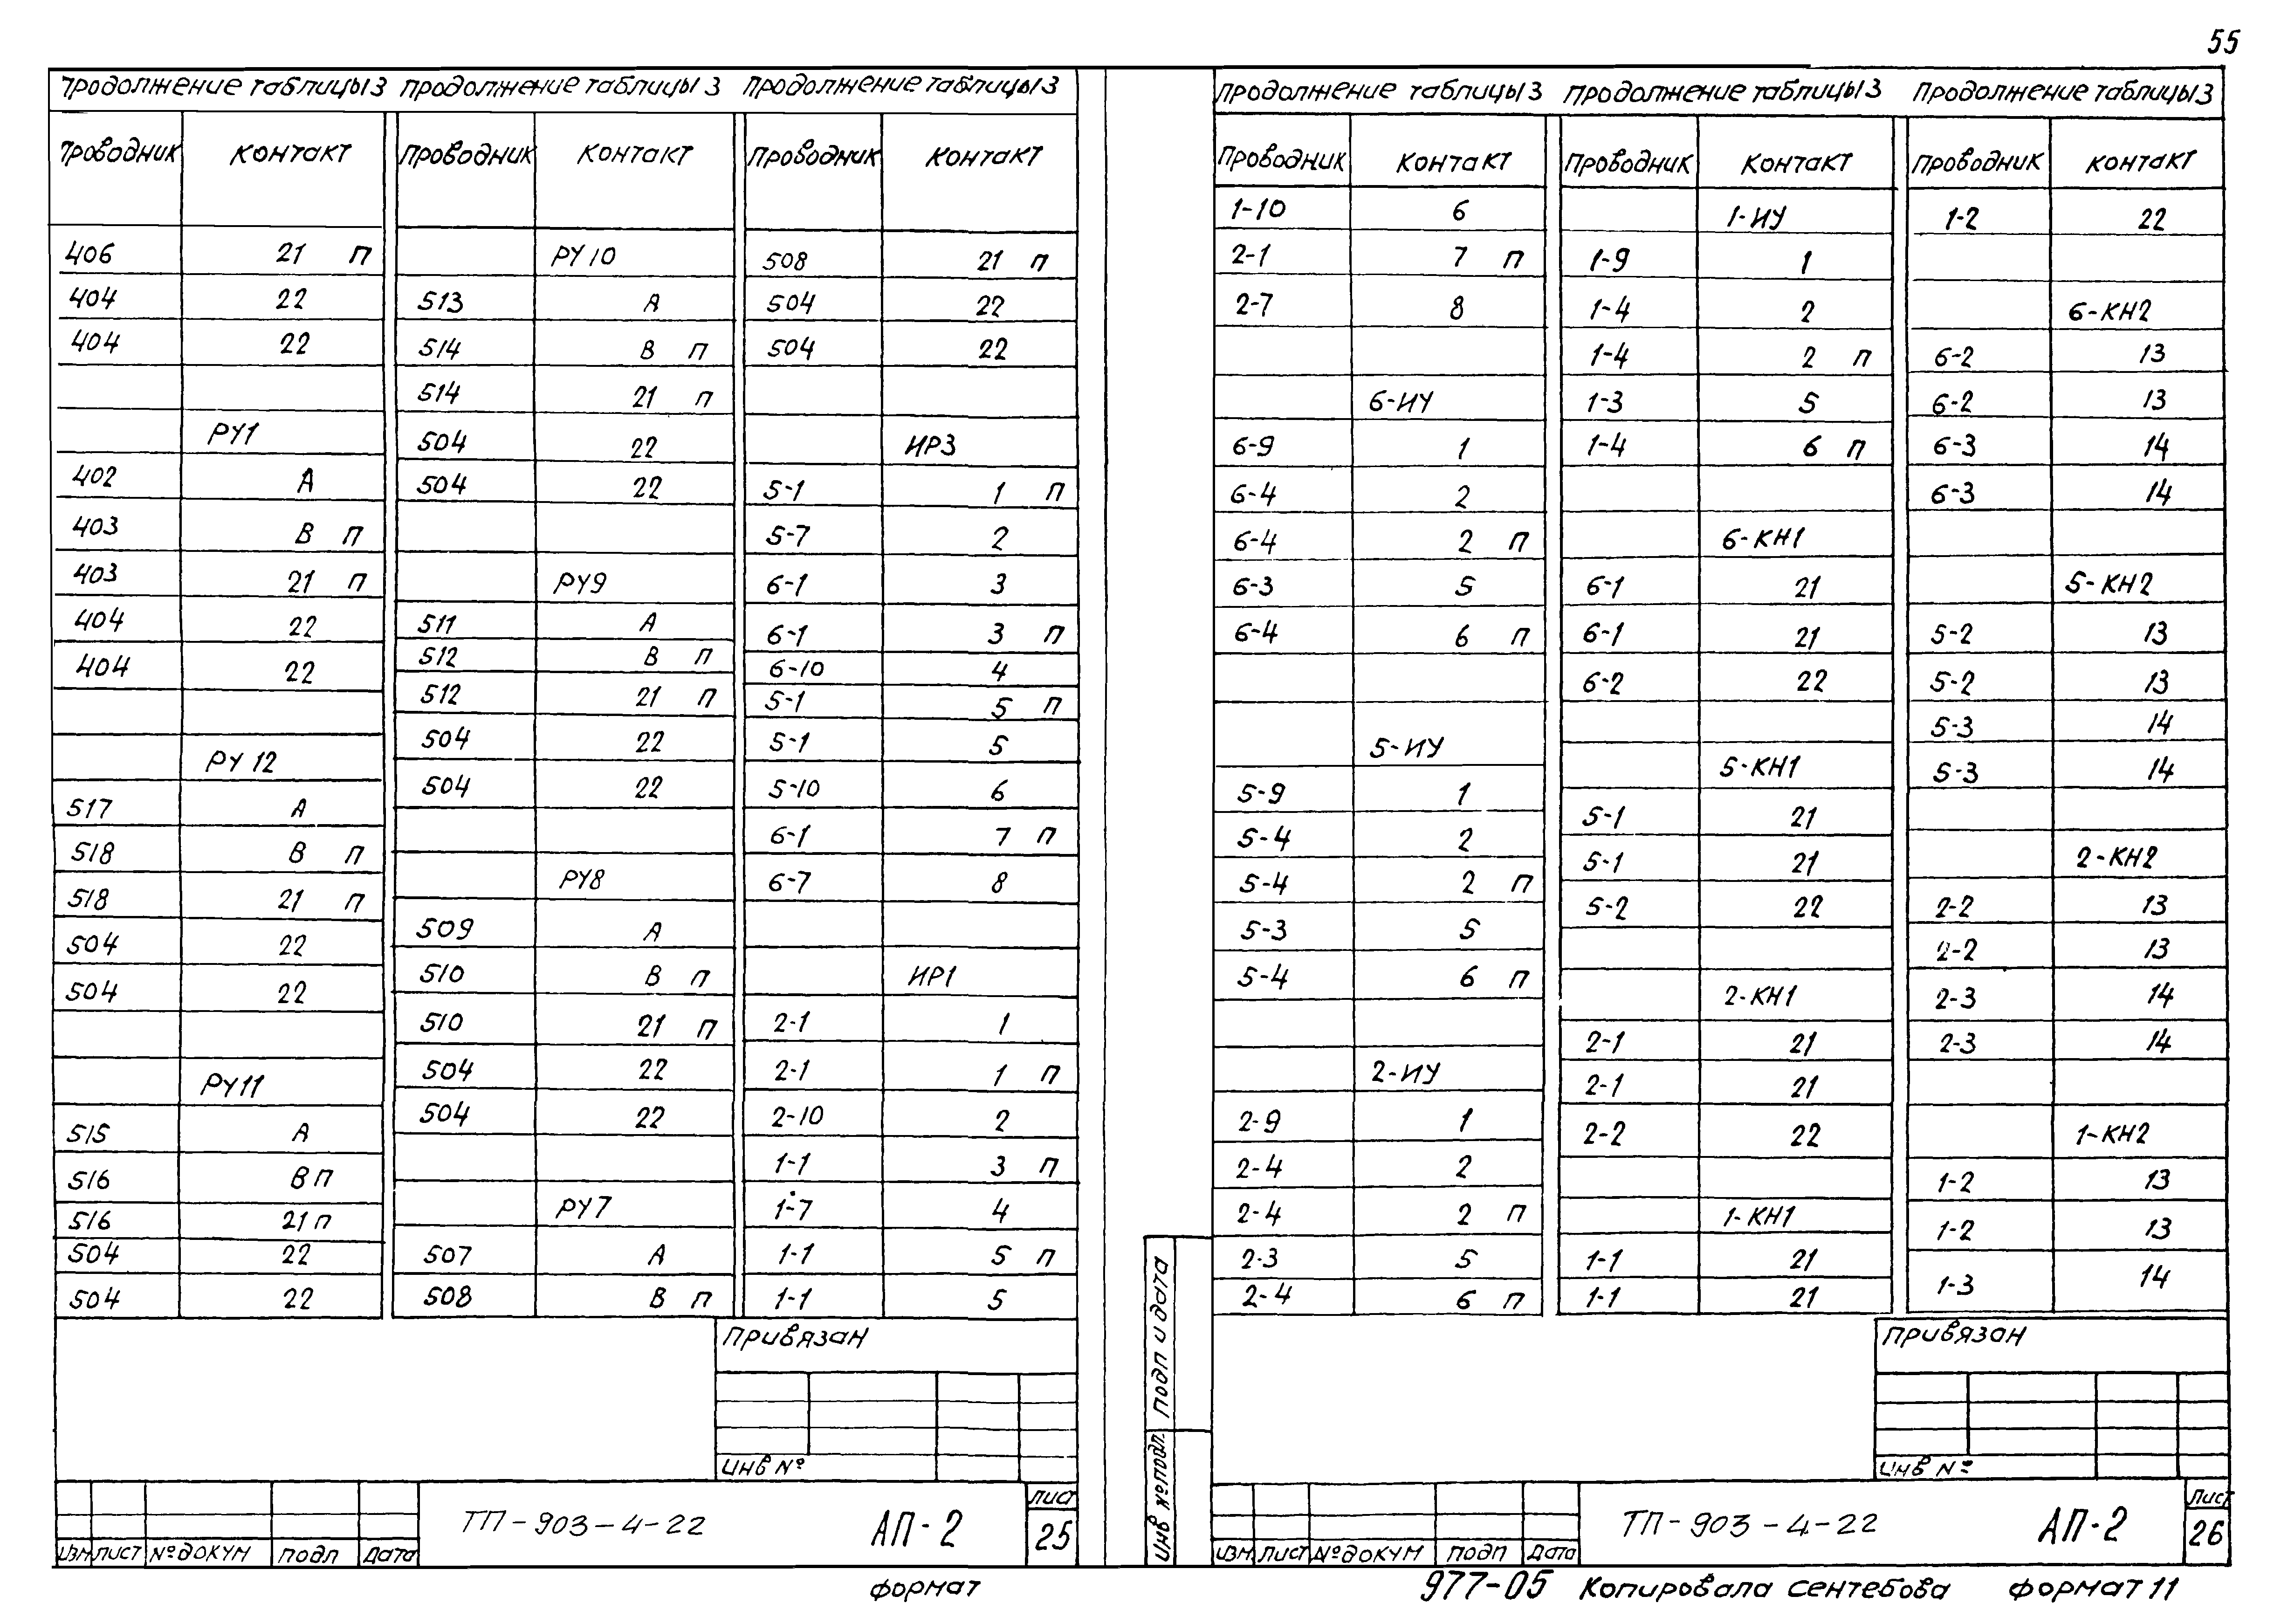 55
Продолжение таблицы 3
Проводник Контакт
406 21 П
404 22
404 22
РУ1
402 А
403 В П
403 21 П
404 22
404 22
РУ12
517 А
518 В П
518 21 П
504 22
504 22
РУ11
515 А
516 В П
516 21 П
504 22
504 22
Продолжение таблицы 3
Проводник Контакт
РУ10
513 А
514 В П
514 21 П
504 22
504 22
РУ9
511 А
512 В П
512 21 П
504 22
504 22
РУ8
509 А
510 В П
510 21 П
504 22
504 22
РУ7
507 А
508 В П
Продолжение таблицы 3
Проводник Контакт
508 21 П
504 22
504 22
ИР3
5-1 1 П
5-7 2
6-1 3
6-1 3 П
6-10 4
5-1 5 П
5-1 5
5-10 6
6-1 7 П
6-7 8
ИР1
2-1 1
2-1 1 П
2-10 2
1-1 3 П
1-7 4
1-1 5 П
1-1 5
Привязан
Инв №
Изм Лист № докум Подп Дата
ТП-903-4-22 АП-2
Лист
25
Формат
Продолжение таблицы 3
Проводник Контакт
1-10 6
2-1 7 П
2-7 8
6-ИУ
6-9 1
6-4 2
6-4 2 П
6-3 5
6-4 6 П
5-ИУ
5-9 1
5-4 2
5-4 2 П
5-3 5
5-4 6 П
2-ИУ
2-9 1
2-4 2
2-4 2 П
2-3 5
2-4 6 П
Продолжение таблицы 3
Проводник Контакт
1-ИУ
1-9 1
1-4 2
1-4 2 П
1-3 5
1-4 6 П
6-КН1
6-1 21
6-1 21
6-2 22
5-КН1
5-1 21
5-1 21
5-2 22
2-КН1
2-1 21
2-1 21
2-2 22
1-КН1
1-1 21
1-1 21
Продолжение таблицы 3
Проводник Контакт
1-2 22
6-КН2
6-2 13
6-2 13
6-3 14
6-3 14
5-КН2
5-2 13
5-2 13
5-3 14
5-3 14
2-КН2
2-2 13
2-2 13
2-3 14
2-3 14
1-КН2
1-2 13
1-2 13
1-3 14
Привязан
Инв №
Подп и дата
Инв № подл.
Изм Лист № докум Подп Дата
ТП-903-4-22 АП-2
Лист
26
977-05 Копировала Сентебова Формат 11